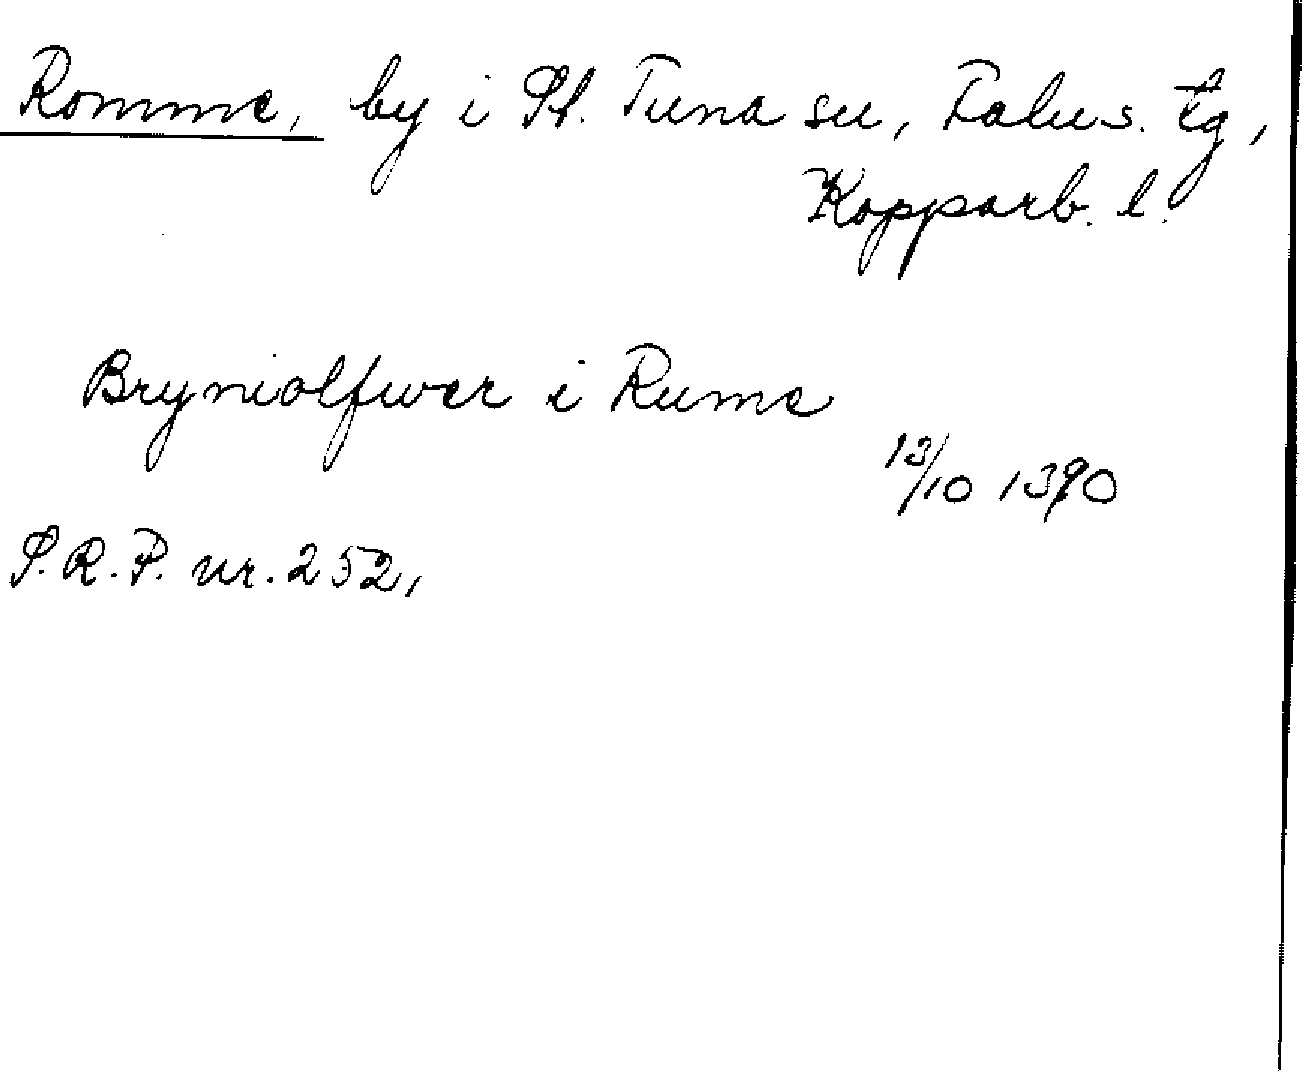 Romme, by i St. Tuna sn, Falu s. tg,
Kopparb. l.
Bryniolfwer i Rume
13/10 1390
S.R.P. nr. 252,